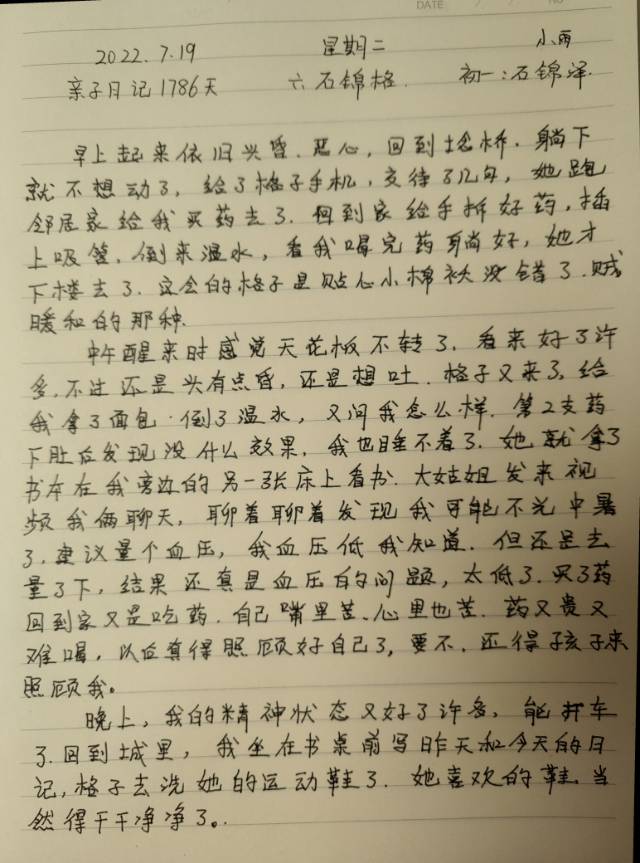 DATE
NO
2022.7.19 星期二 小雨
亲子日记1786天 六石锦格. 初一:石锦泽.
早上起来依旧头昏.恶心,回到埝桥.躺下
就不想动了,给了格子手机,交待了几句,她跑
邻居家给我买药去了.回到家给手拆好药,插
上吸管.倒来温水,看我喝完药躺好,她才
下楼去了.这会的格子是贴心小棉袄没错了.贼
暖和的那种.
中午醒来时感觉天花板不转了,看来好了许
多,不过还是头有点昏,还是想吐.格子又来了,给
我拿了面包.倒了温水,又问我怎么样.第2支药
下肚后发现没什么效果,我也睡不着了.她就拿了
书本在我旁边的另一张床上看书.大姑姐发来视
频我俩聊天,聊着聊着发现我可能不光中暑
了,建议量个血压,我血压低我知道.但还是去
量了下,结果还真是血压的问题,太低了.买了药
回到家又是吃药.自己嘴里苦、心里也苦.药又贵又
难喝,以后真得照顾好自己了,要不.还得孩子来
照顾我。
晚上,我的精神状态又好了许多,能开车
了.回到城里,我坐在书桌前写昨天和今天的日
记,格子去洗她的运动鞋了.她喜欢的鞋.当
然得干干净净了。.